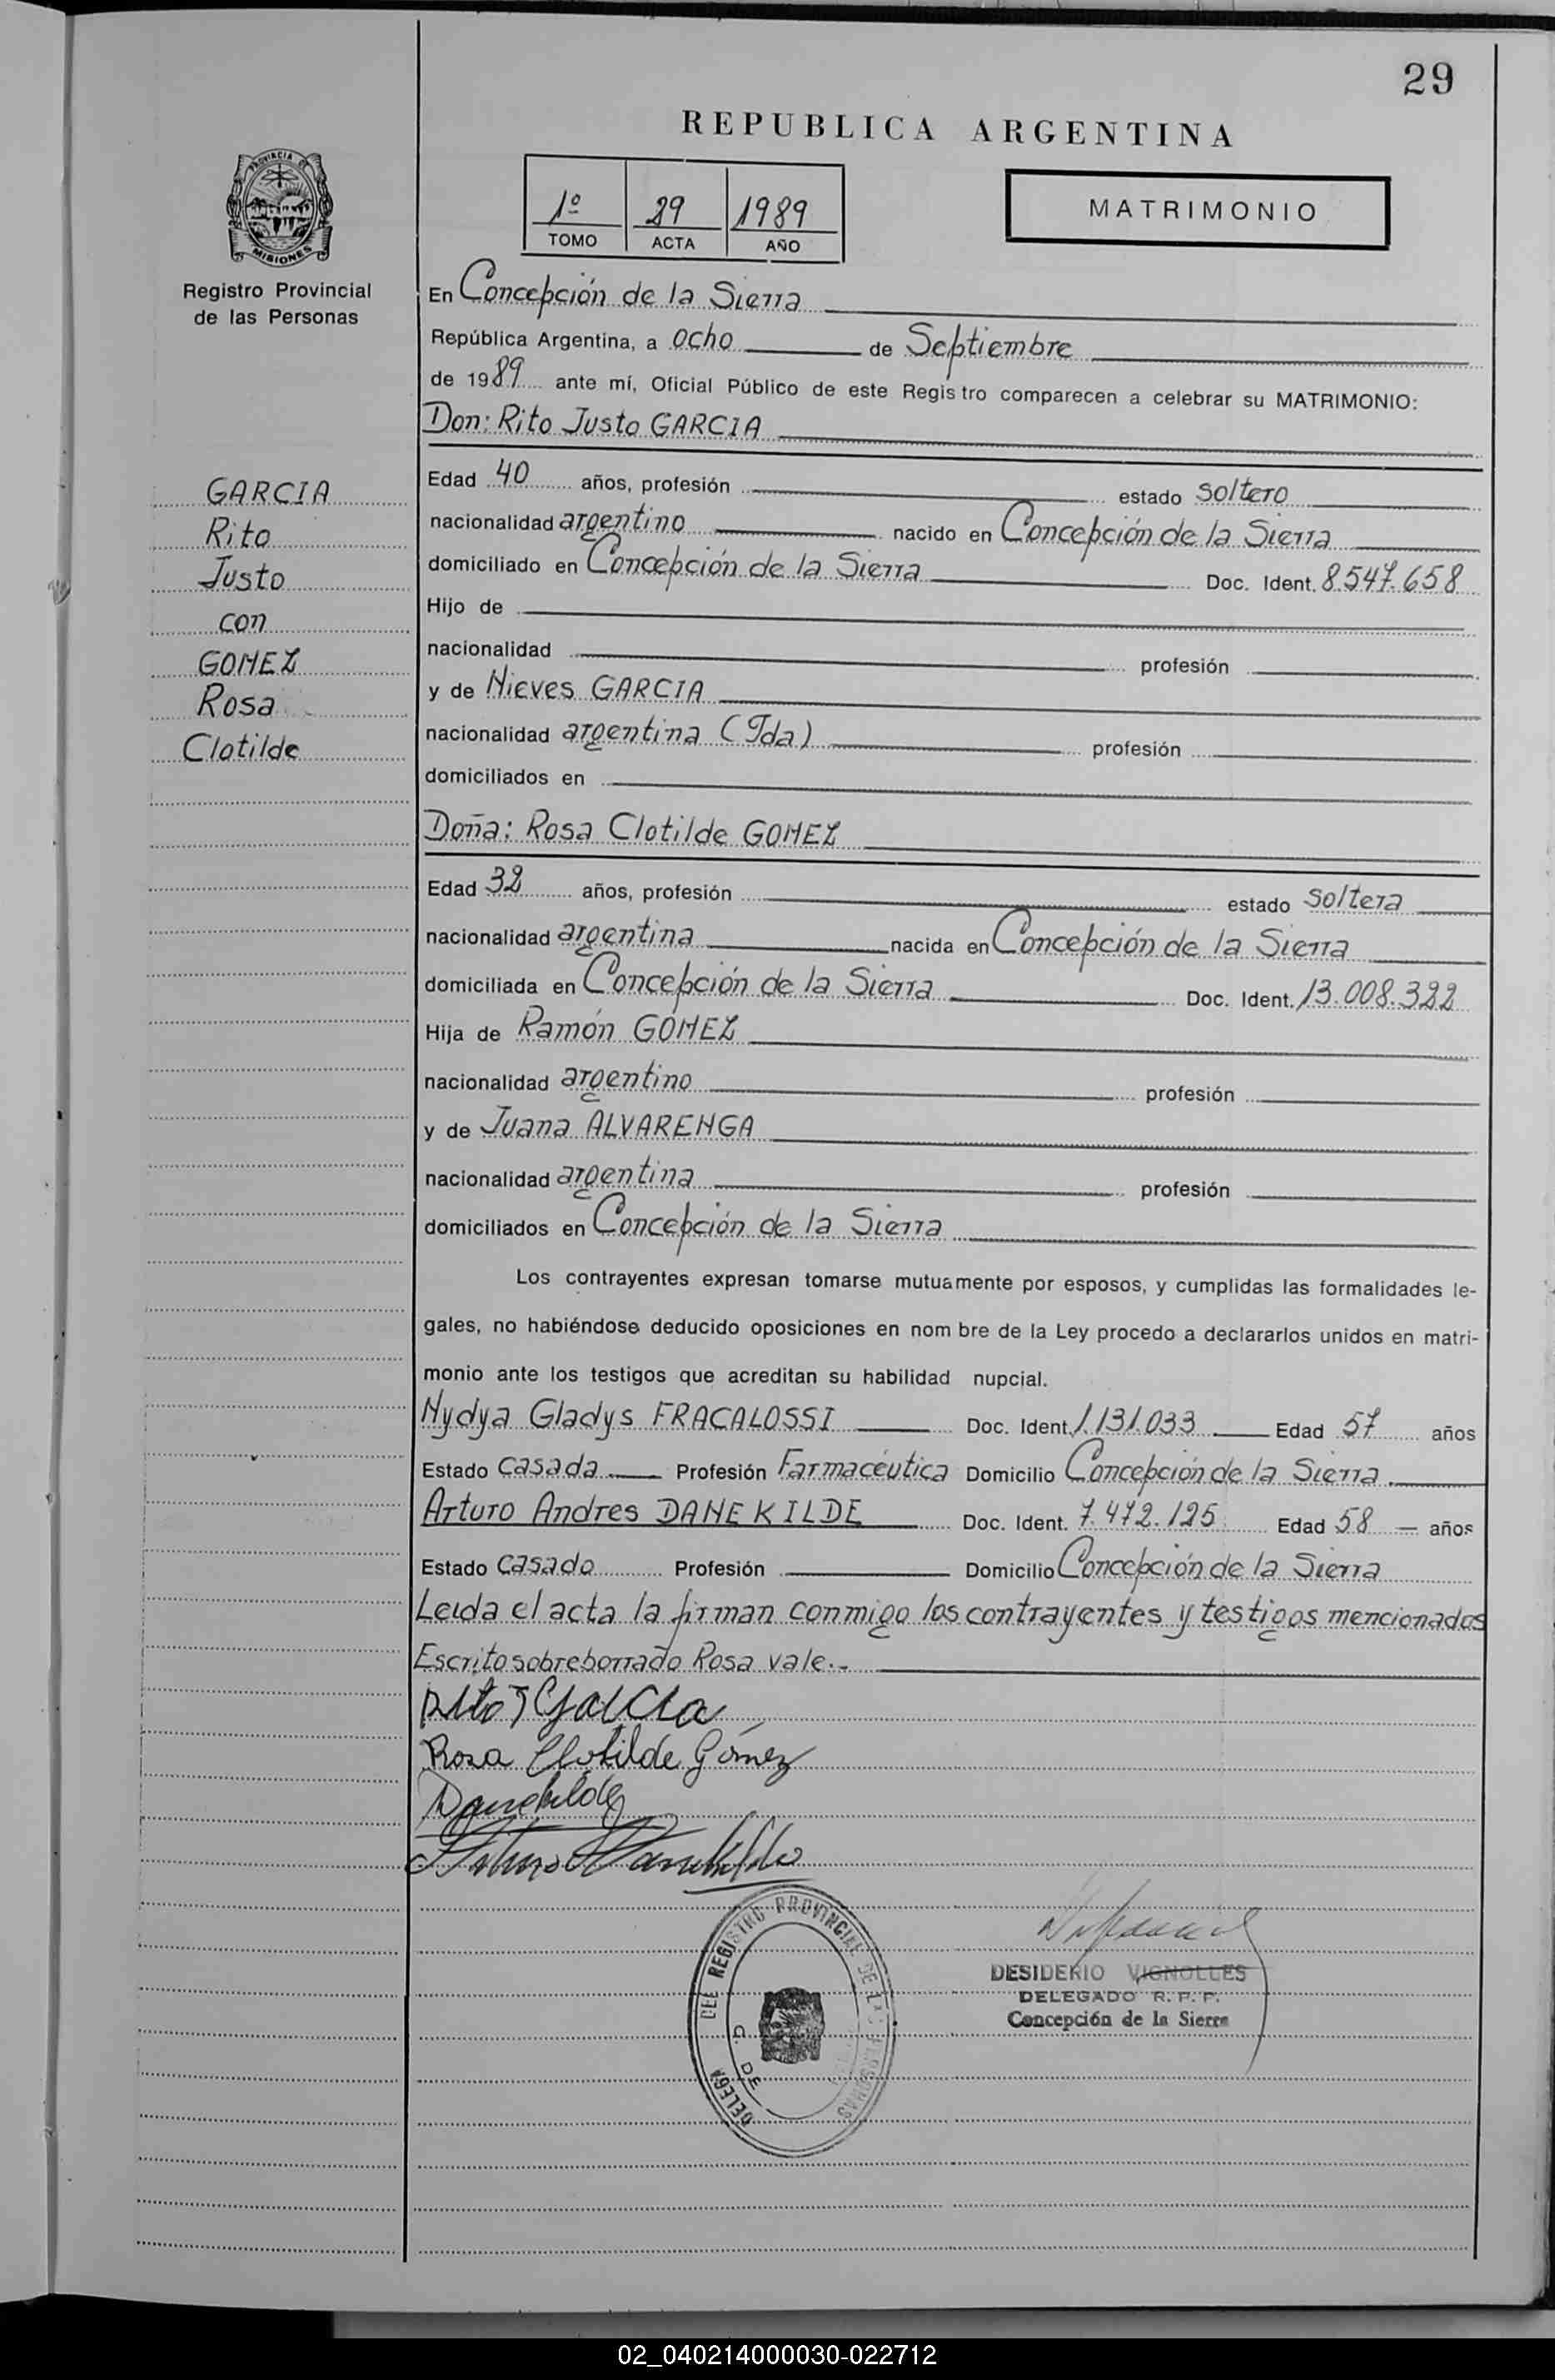 29
REPUBLICA ARGENTINA
1º 29 1989
TOMO ACTA AÑO
MATRIMONIO
PROVINCIA DE
MISIONES
Registro Provincial
de las Personas
En Concepción de la Sierra
República Argentina, a ocho de Septiembre
de 1989 ante mí, Oficial Público de este Regis tro comparecen a celebrar su MATRIMONIO:
Don: Rito Justo GARCIA
Edad 40 años, profesión estado soltero
nacionalidad argentino nacido en Concepción de la Sierra
domiciliado en Concepción de la Sierra Doc. Ident. 8.547.658
Hijo de
nacionalidad profesión
y de Nieves GARCIA
nacionalidad argentina (Fda) profesión
domiciliados en
GARCIA
Rito
Justo
con
GOMEZ
Rosa
Clotilde
Doña: Rosa Clotilde GOMEZ
Edad 32 años, profesión estado soltera
nacionalidad argentina nacida en Concepción de la Sierra
domiciliada en Concepción de la Sierra Doc. Ident. 13.008.322
Hija de Ramón GOMEZ
nacionalidad argentino profesión
y de Juana ALVARENGA
nacionalidad argentina profesión
domiciliados en Concepción de la Sierra
Los contrayentes expresan tomarse mutuamente por esposos, y cumplidas las formalidades le-
gales, no habiéndose deducido oposiciones en nom bre de la Ley procedo a declararlos unidos en matri-
monio ante los testigos que acreditan su habilidad nupcial.
Nydya Gladys FRACALOSSI Doc. Ident. 1.131.033 Edad 57 años
Estado casada Profesión Farmacéutica Domicilio Concepción de la Sierra
Arturo Andres DANEKILDE Doc. Ident. 7.472.125 Edad 58 años
Estado casado Profesión Domicilio Concepción de la Sierra
Leida el acta la firman conmigo los contrayentes y testigos mencionados
Escrito sobreborrado Rosa vale.-
Rito J Garcia
Rosa Clotilde Gómez
Danekilde
Arturo Danekilde
DELEGA DEL REGISTRO PROVINCIAL DE LAS PERSONAS
C. DE
DESIDERIO VIGNOLLES
DELEGADO R. P. P.
Concepción de la Sierra
02_040214000030-022712